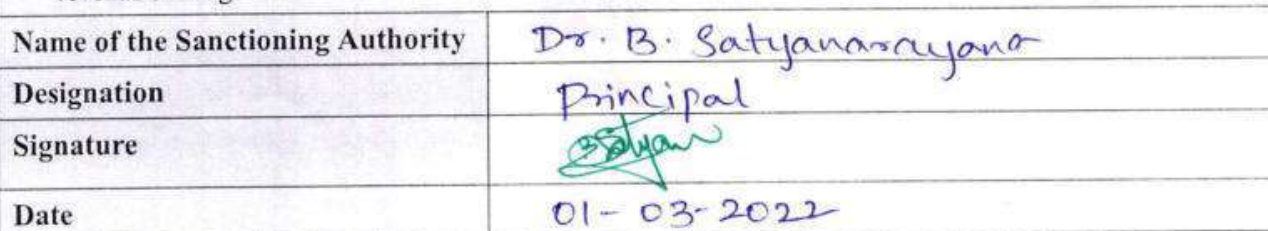 Name of the Sanctioning Authority Dr. B. Satyanarayana
Designation Principal
Signature BSatyan
Date 01-03-2022